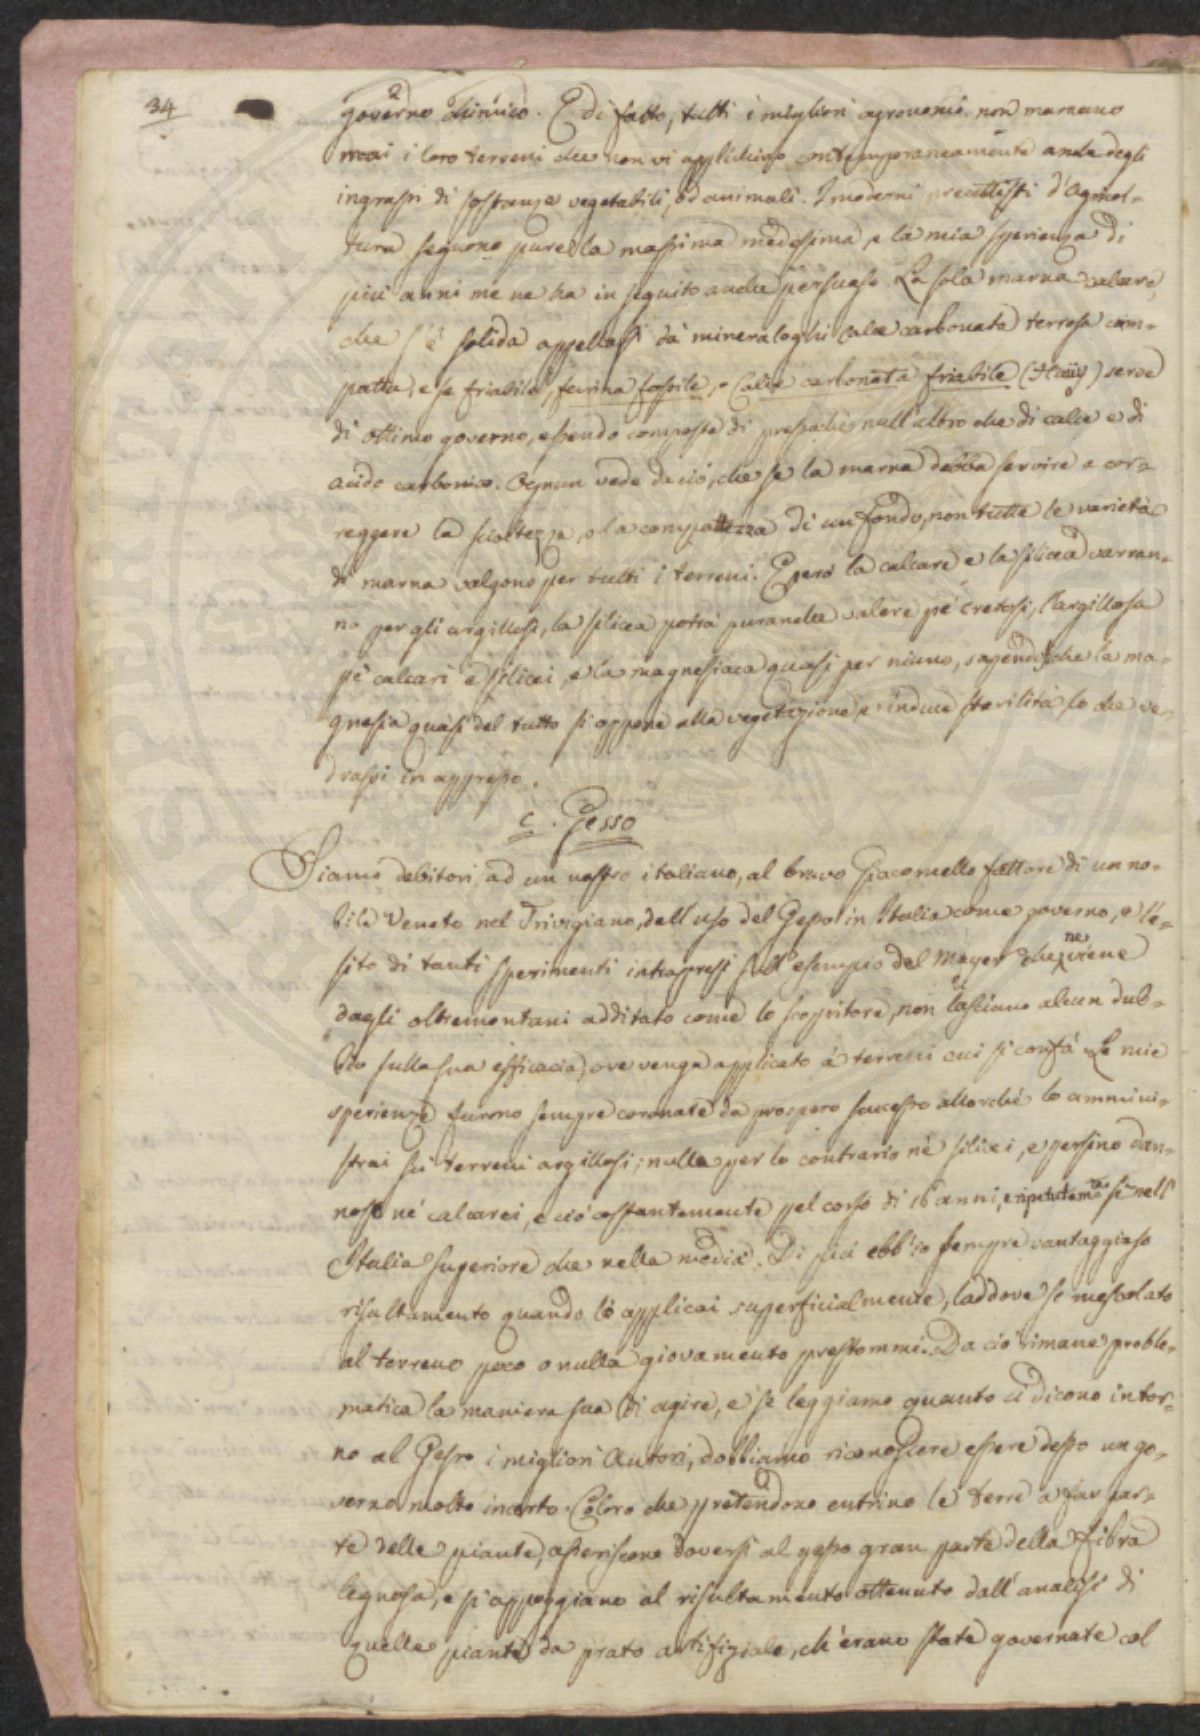 34
governo chimico. E di fatto, tutti i migliori agronomi non marnano
mai i loro terreni che non vi applichino contemporaneamente anche degli
ingrassi di sostanze vegetabili, od animali. I moderni precettisti d'Agricol-
tura seguono pure la massima medesima, e la mia sperienza di
più anni me ne ha in seguito anche persuaso. La sola marna calcare,
che s'è solida appellasi da' mineraloghi Calce carbonata terrosa com-
patta, e se friabile, farina fossile, o Calce carbonata friabile (Haüy) serve
di ottimo governo, essendo composta di pressochè null'altro che di calce e di
acido carbonico. Ognun vede da ciò, che se la marna debba servire a cor-
reggere la scioltezza, o la compattezza di un fondo, non tutte le varietà
di marna valgono per tutti i terreni. E però la calcare e la silicea varran-
no per gli argillosi, la silicea potrà puranche valere pe' cretosi, l'argillosa
pe' calcari e silicei, e la magnesiaca quasi per niuno, sapendosi che la ma-
gnesia quasi del tutto si oppone alla vegetazione e induce sterilità, lo che ve-
drassi in appresso.
c. Gesso
Siamo debitori ad un nostro italiano, al bravo Giacomello fattore di un no-
bile Veneto nel Trivigiano, dell'uso del Gesso in Italia come governo, e l'e-
sito di tanti sperimenti intrapresi sull'esempio del Mayer che ne viene
dagli oltremontani additato come lo scopritore, non lasciano alcun dub-
bio sulla sua efficacia, ove venga applicato a' terreni cui si confà. Le mie
sperienze furono sempre coronate da prospero successo allorchè lo ammini-
strai su' terreni argillosi; nulla per lo contrario ne' silicei, e persino dan-
noso ne' calcarei, e ciò costantemente pel corso di 16 anni, e ripetutamte sì nell'
Italia Superiore che nella media. Di più ebb'io sempre vantaggioso
risultamento quando lo applicai superficialmente, laddove se mescolato
al terreno poco o nulla giovamento prestommi. Da ciò rimane proble-
matica la maniera sua di agire, e se leggiamo quanto ci dicono intor-
no al Gesso i migliori Autori, dobbiamo riconoscere essere desso un go-
verno molto incerto. Coloro che pretendono entrino le terre a far par-
te delle piante, asseriscono doversi al gesso gran parte della fibra
legnosa, e si appoggiano al risultamento ottenuto dall'analisi di
quelle piante da prato artifiziale, ch'erano state governate col